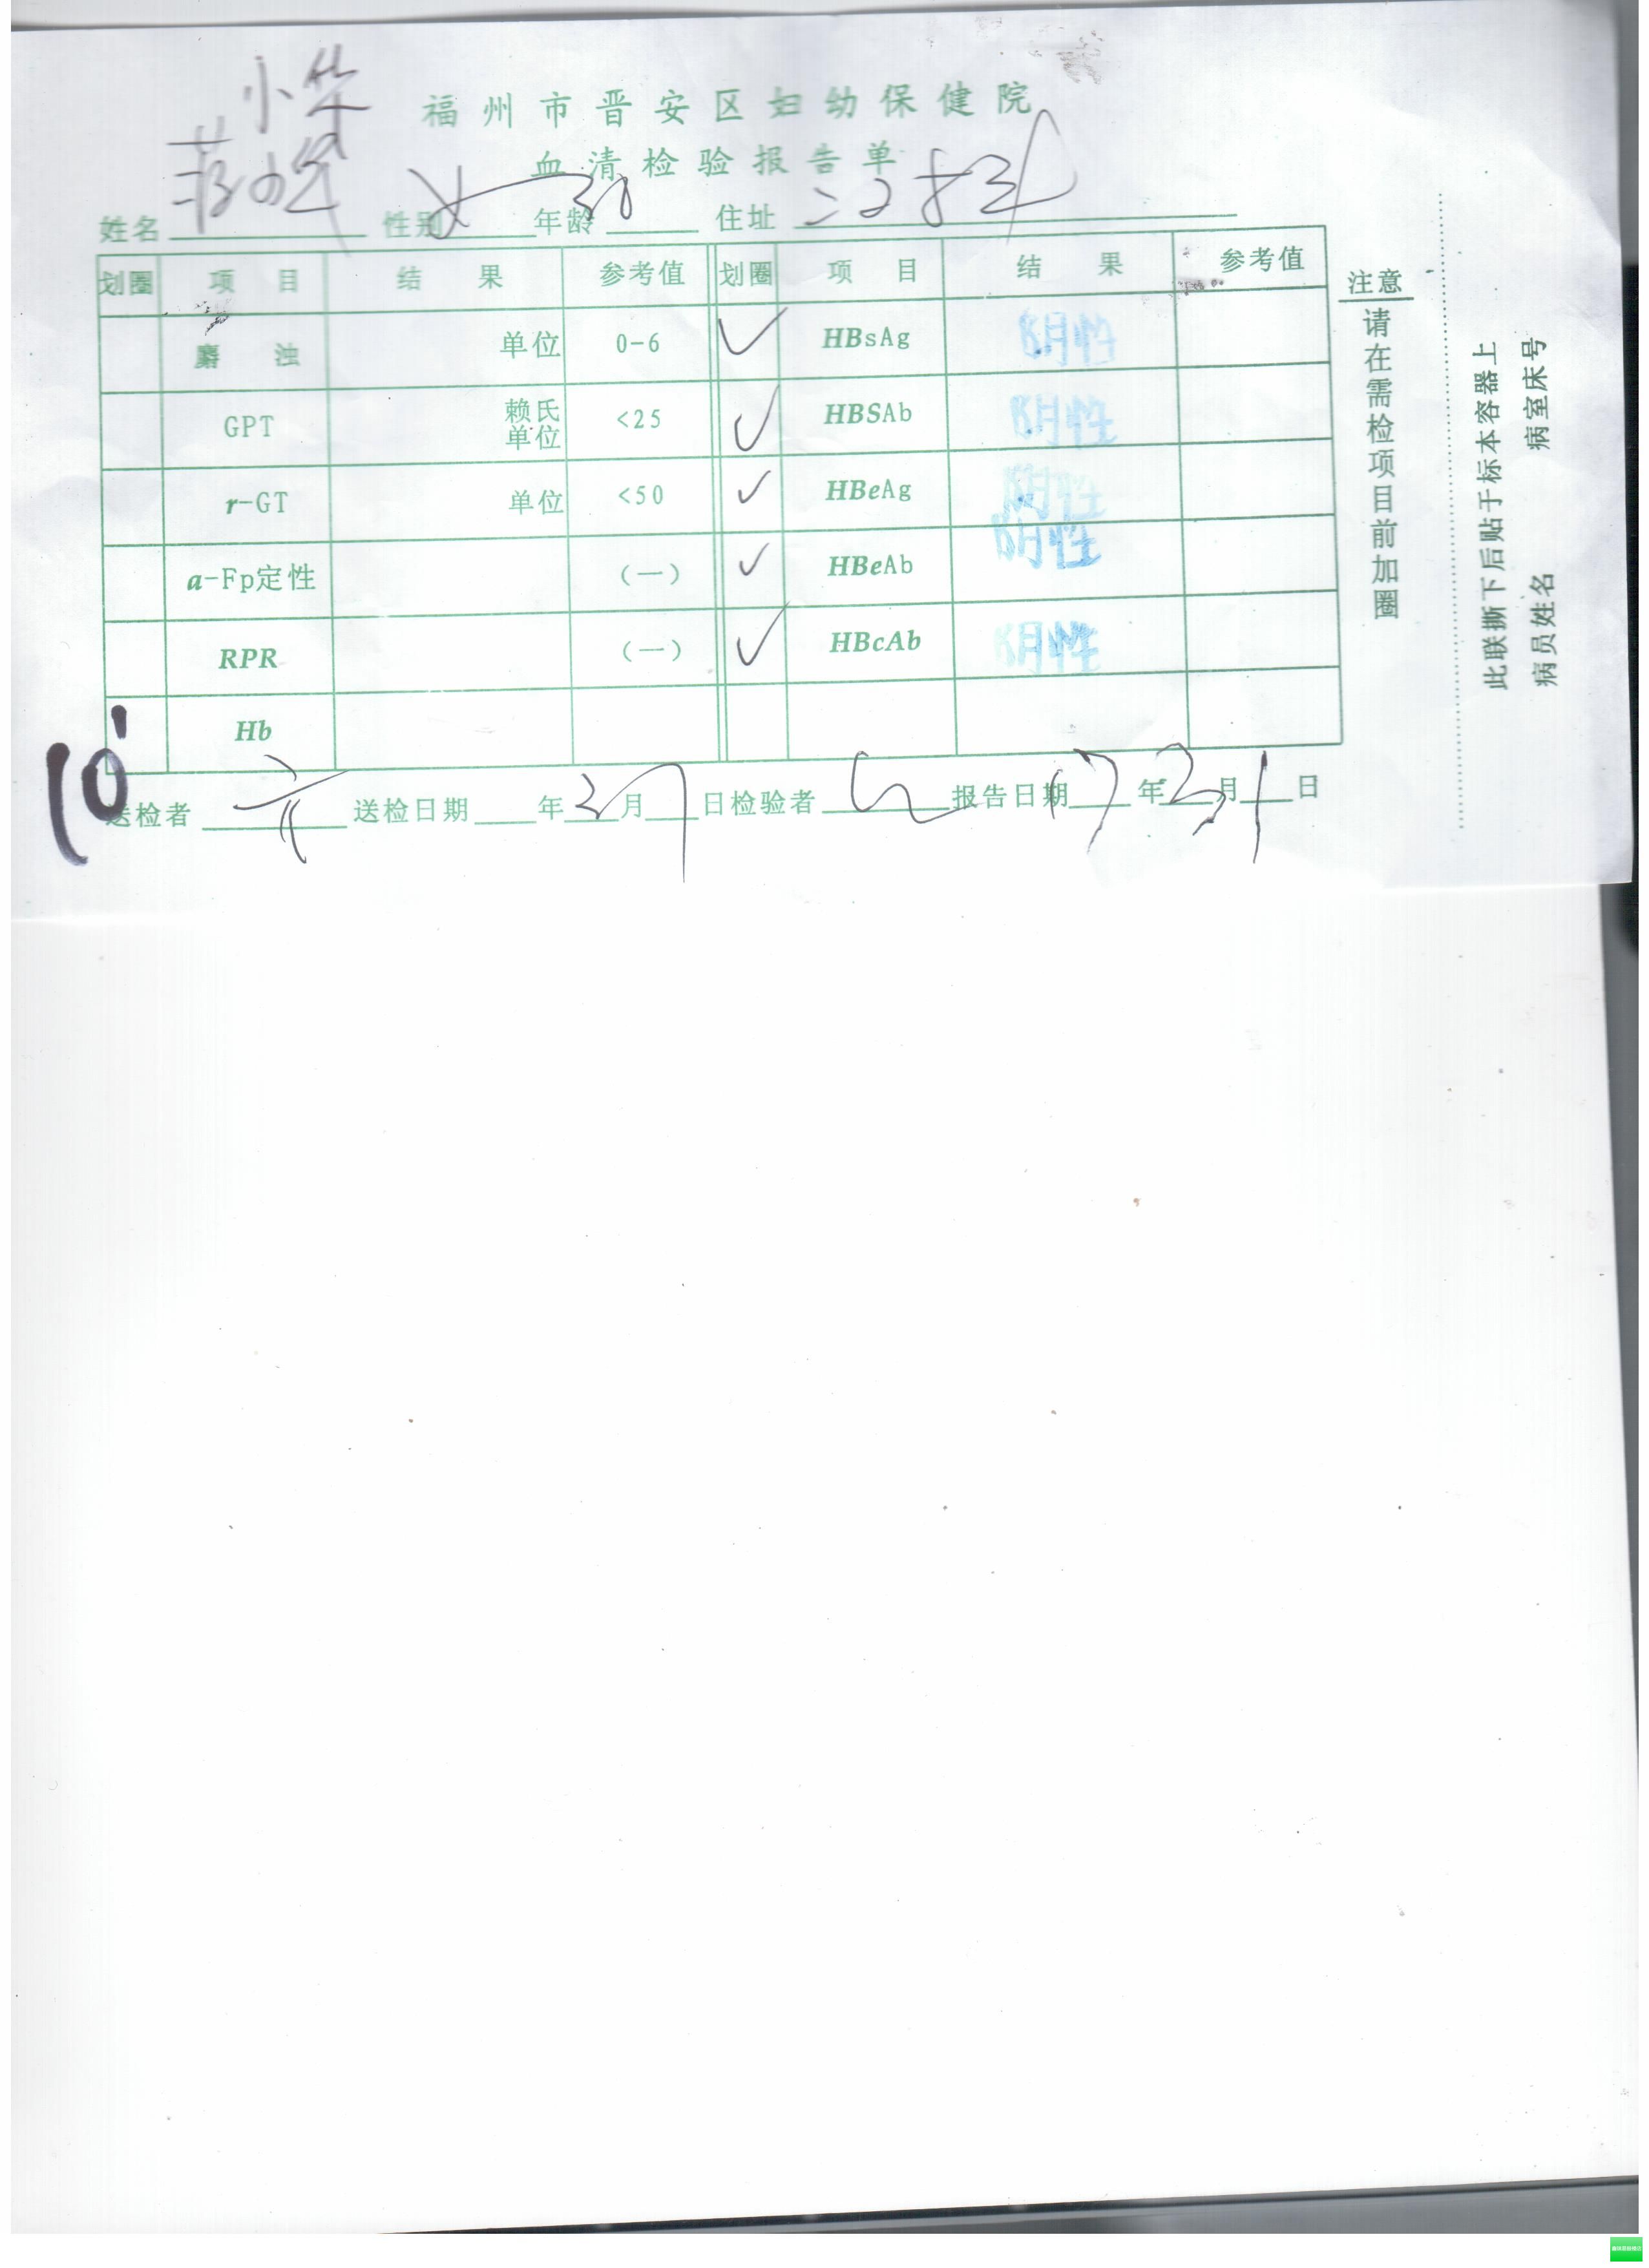 小华
福州市晋安区妇幼保健院
血清检验报告单
姓名 性别 女 年龄 30 住址
划圈 项目 结果 参考值 划圈 项目 结果 参考值
麝浊 单位 0-6 ✓ HBsAg 阴性
GPT 赖氏单位 <25 ✓ HBSAb 阴性
r-GT 单位 <50 ✓ HBeAg 阴性
a-Fp定性 (一) ✓ HBeAb 阴性
RPR (一) ✓ HBcAb 阴性
Hb
10
送检者 送检日期 年 3 月 日 检验者 报告日期 年 3 月 日
注意
请在需检项目前加圈
此联撕下后贴于标本容器上
病员姓名 病室床号